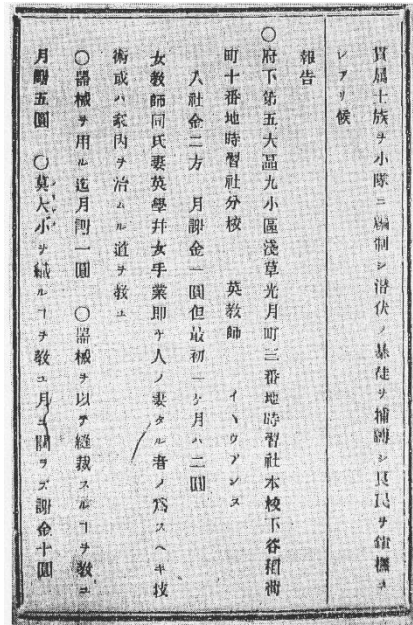 貫屬士族ヲ小隊ニ編制シ潜伏ノ暴徒ヲ捕縛シ良民ヲ鎮撫ス
レアリ候
報告
〇府下第五大區九小區淺草光月町三番地時習社本校下谷稻荷
町十番地時習社分校 英教師 イヽウアンス
入社金二方 月謝金一圓但最初一ケ月ハ二圓
女教師同氏妻英學幷女手業即チ人ノ妻タル者ノ爲スヘキ技
術或ハ家内ヲ治ムル道ヲ教ユ
〇器械ヲ用ル迄月謝一圓 〇器械ヲ以テ縫裁スルヿヲ教ユ
月謝五圓 〇莫大小ヲ織ルヿヲ教ユ月ニ關ラズ謝金十圓